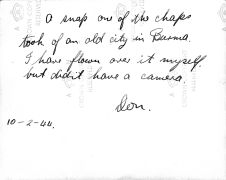 a snap one of the chaps
took of an old city in Burma.
I have flown over it myself.
but didn't have a camera.
Don.
10-2-44.